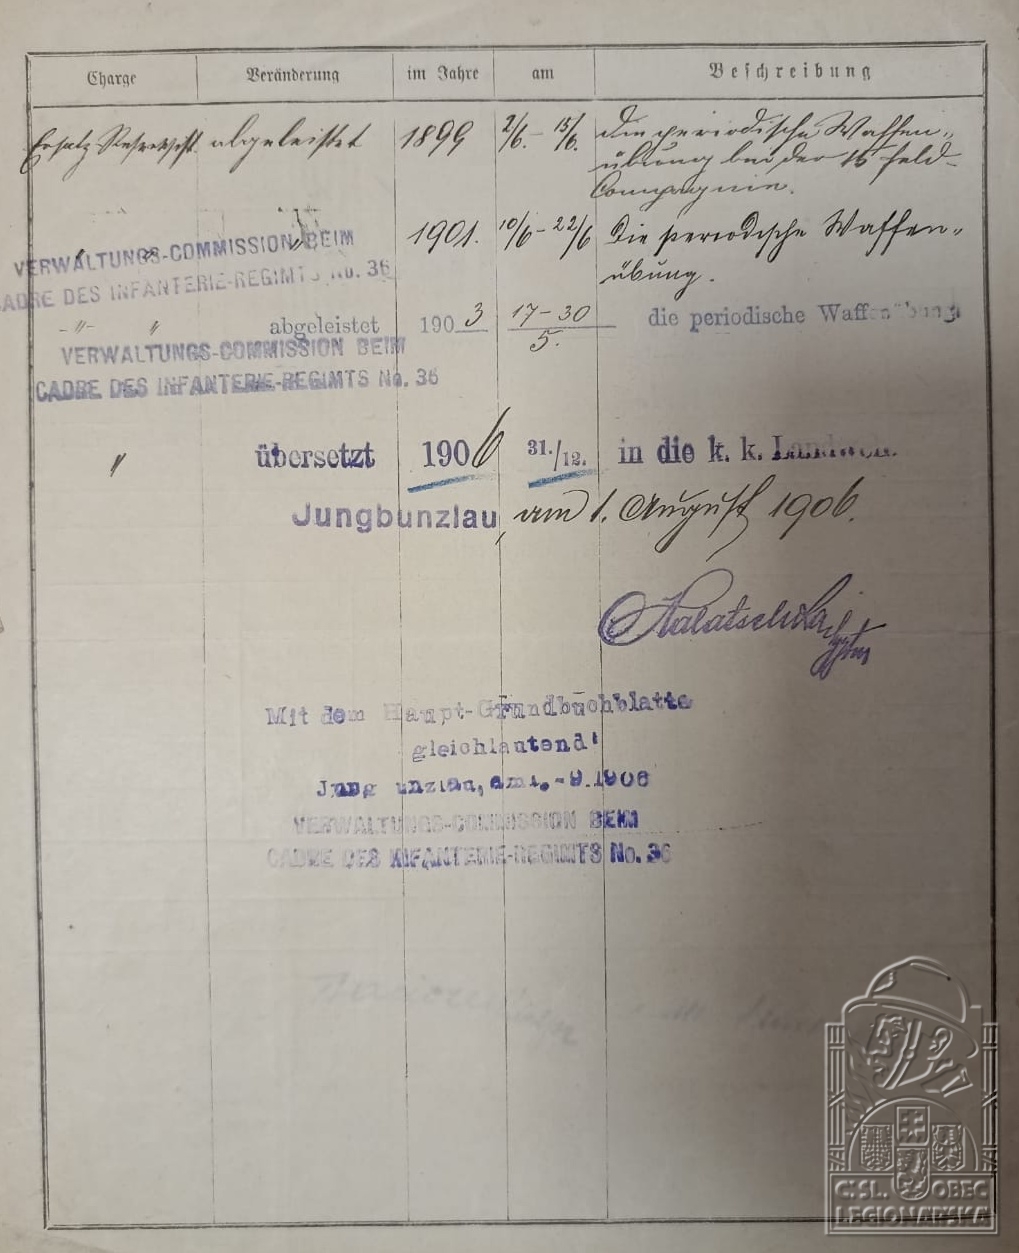 Charge Veränderung im Jahre am Beschreibung
Ersatz Reservist abgeleistet 1899 2/6. - 15/6. die periodische Waffen-
übung bei der 15 Feld-
Compagnie.
" " 1901. 10/6 - 22/6 Die periodische Waffen-
übung.
VERWALTUNGS-COMMISSION BEIM
CADRE DES INFANTERIE-REGIMTS No. 36
-"- " abgeleistet 1903 17-30/5. die periodische Waffenübung
VERWALTUNGS-COMMISSION BEIM
CADRE DES INFANTERIE-REGIMTS No. 36
" übersetzt 1906 31./12. in die k. k. Landwehr.
Jungbunzlau, am 1. August 1906.
Mit dem Haupt-Grundbuchblatte
gleichlautend
Jungbunzlau, am 1. -9.1906
VERWALTUNGS-COMMISSION BEIM
CADRE DES INFANTERIE-REGIMTS No. 36
Č.SL. OBEC
LEGIONÁŘSKÁ